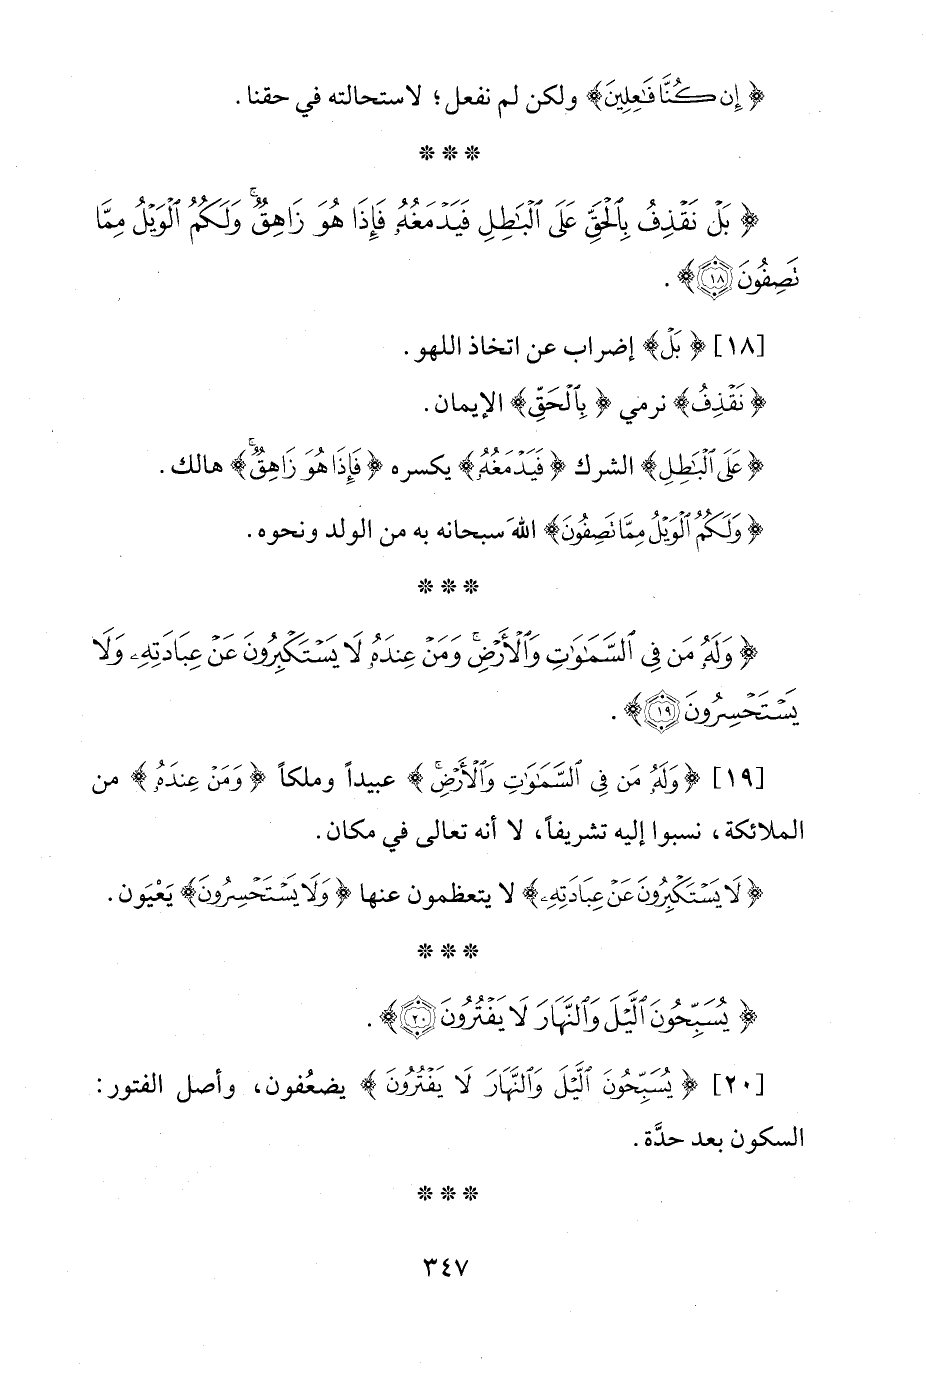 ﴿ إِن كُنَّا فَٰعِلِينَ﴾ ولكن لم نفعل؛ لاستحالته في حقنا .
❊ ❊ ❊
﴿ بَلۡ نَقۡذِفُ بِٱلۡحَقِّ عَلَى ٱلۡبَٰطِلِ فَيَدۡمَغُهُۥ فَإِذَا هُوَ زَاهِقٞۚ وَلَكُمُ ٱلۡوَيۡلُ مِمَّا
تَصِفُونَ ١٨﴾ .
[١٨] ﴿ بَلۡ﴾ إضراب عن اتخاذ اللهو .
﴿ نَقۡذِفُ﴾ نرمي ﴿ بِٱلۡحَقِّ﴾ الإيمان .
﴿ عَلَى ٱلۡبَٰطِلِ﴾ الشرك ﴿ فَيَدۡمَغُهُۥ﴾ يكسره ﴿ فَإِذَا هُوَ زَاهِقٞۚ﴾ هالك .
﴿ وَلَكُمُ ٱلۡوَيۡلُ مِمَّا تَصِفُونَ﴾ اللهَ سبحانه به من الولد ونحوه .
❊ ❊ ❊
﴿ وَلَهُۥ مَن فِي ٱلسَّمَٰوَٰتِ وَٱلۡأَرۡضِۚ وَمَنۡ عِندَهُۥ لَا يَسۡتَكۡبِرُونَ عَنۡ عِبَادَتِهِۦ وَلَا
يَسۡتَحۡسِرُونَ ١٩﴾ .
[١٩] ﴿ وَلَهُۥ مَن فِي ٱلسَّمَٰوَٰتِ وَٱلۡأَرۡضِۚ ﴾ عبيداً وملكاً ﴿ وَمَنۡ عِندَهُۥ ﴾ من
الملائكة، نسبوا إليه تشريفاً، لا أنه تعالى في مكان .
﴿ لَا يَسۡتَكۡبِرُونَ عَنۡ عِبَادَتِهِۦ﴾ لا يتعظمون عنها ﴿ وَلَا يَسۡتَحۡسِرُونَ﴾ يَعْيَون .
❊ ❊ ❊
﴿ يُسَبِّحُونَ ٱلَّيۡلَ وَٱلنَّهَارَ لَا يَفۡتُرُونَ ٢٠﴾ .
[٢٠] ﴿ يُسَبِّحُونَ ٱلَّيۡلَ وَٱلنَّهَارَ لَا يَفۡتُرُونَ ﴾ يضعُفون، وأصل الفتور:
السكون بعد حدَّة .
❊ ❊ ❊
٣٤٧